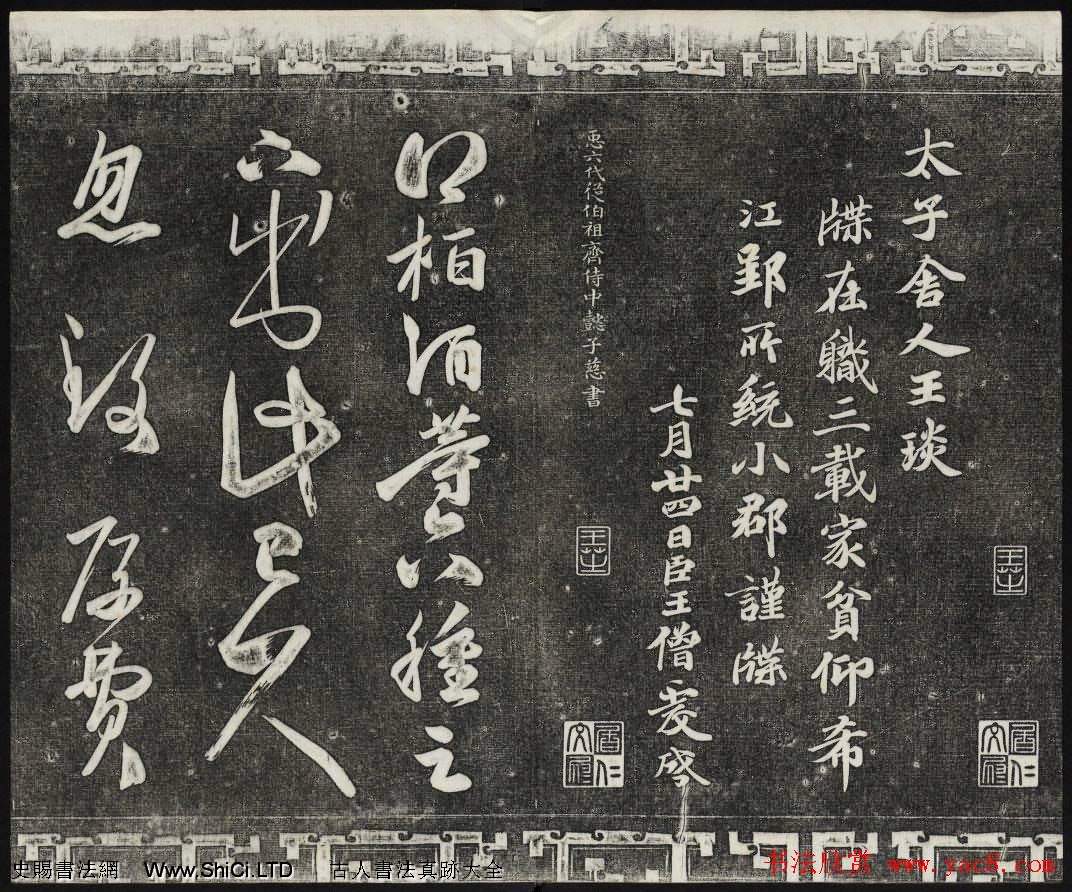 太子舍人王琰
牒在職三載家貧仰希
江郢所統小郡謹牒
七月廿四日臣王僧虔啓
六代從伯祖齊侍中懿子慈書
柏酒等六種足
下此已
忽致厚費
史賜書法網 Www.ShiCi.LTD 古人書法真跡大全
书法欣赏 www.yac8.com